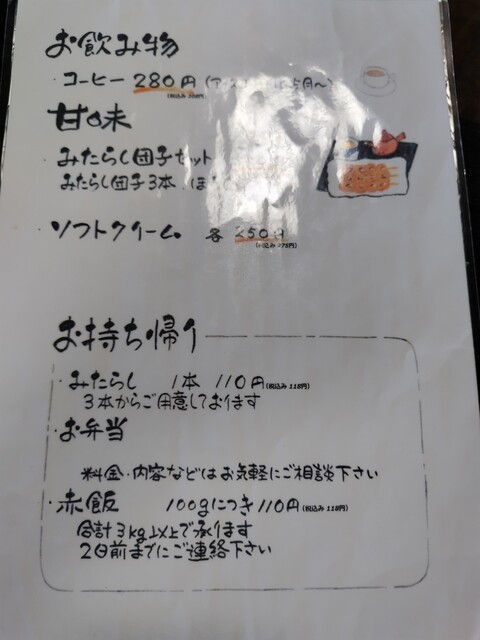 お飲み物
・コーヒー 280円
(税込み 308円)
甘味
みたらし団子セット
みたらし団子3本、ほ
ソフトクリーム 各 250円
(税込み 275円)
お持ち帰り
・みたらし 1本 110円(税込み 118円)
3本からご用意しております
・お弁当
料金・内容などはお気軽にご相談下さい
・赤飯 100gにつき110円(税込み 118円)
合計3kg以上で承ります
2日前までにご連絡下さい